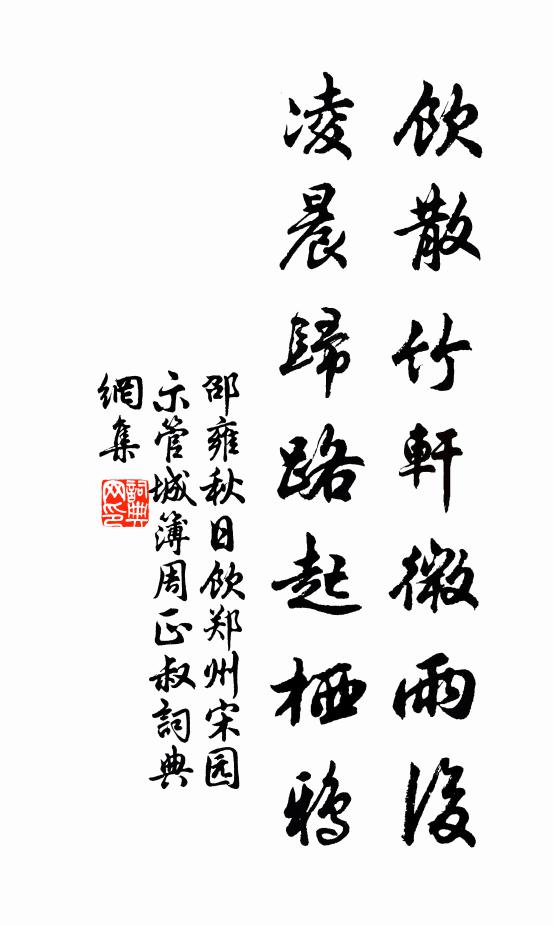 飲散竹軒微雨後
凌晨歸路起栖鴉
邵雍秋日飲郑州宋园
示管城簿周正叔詞典
網集
詞典
网印